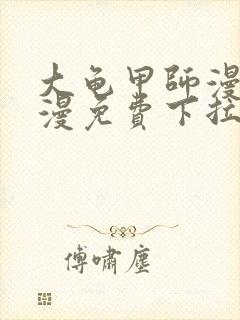 大龟甲師漫
漫免費下拉
傅嘯塵